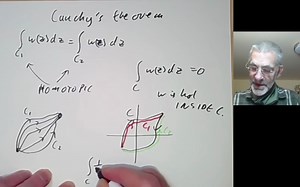 Cauchy's theorem
∫_{C₁} w(z)dz = ∫_{C₂} w(z) dz
HOMOTOPIC
∫_C w(z)dz = 0
w is hol
INSIDE C.
C₁
C₂
C₁
∫_C 1